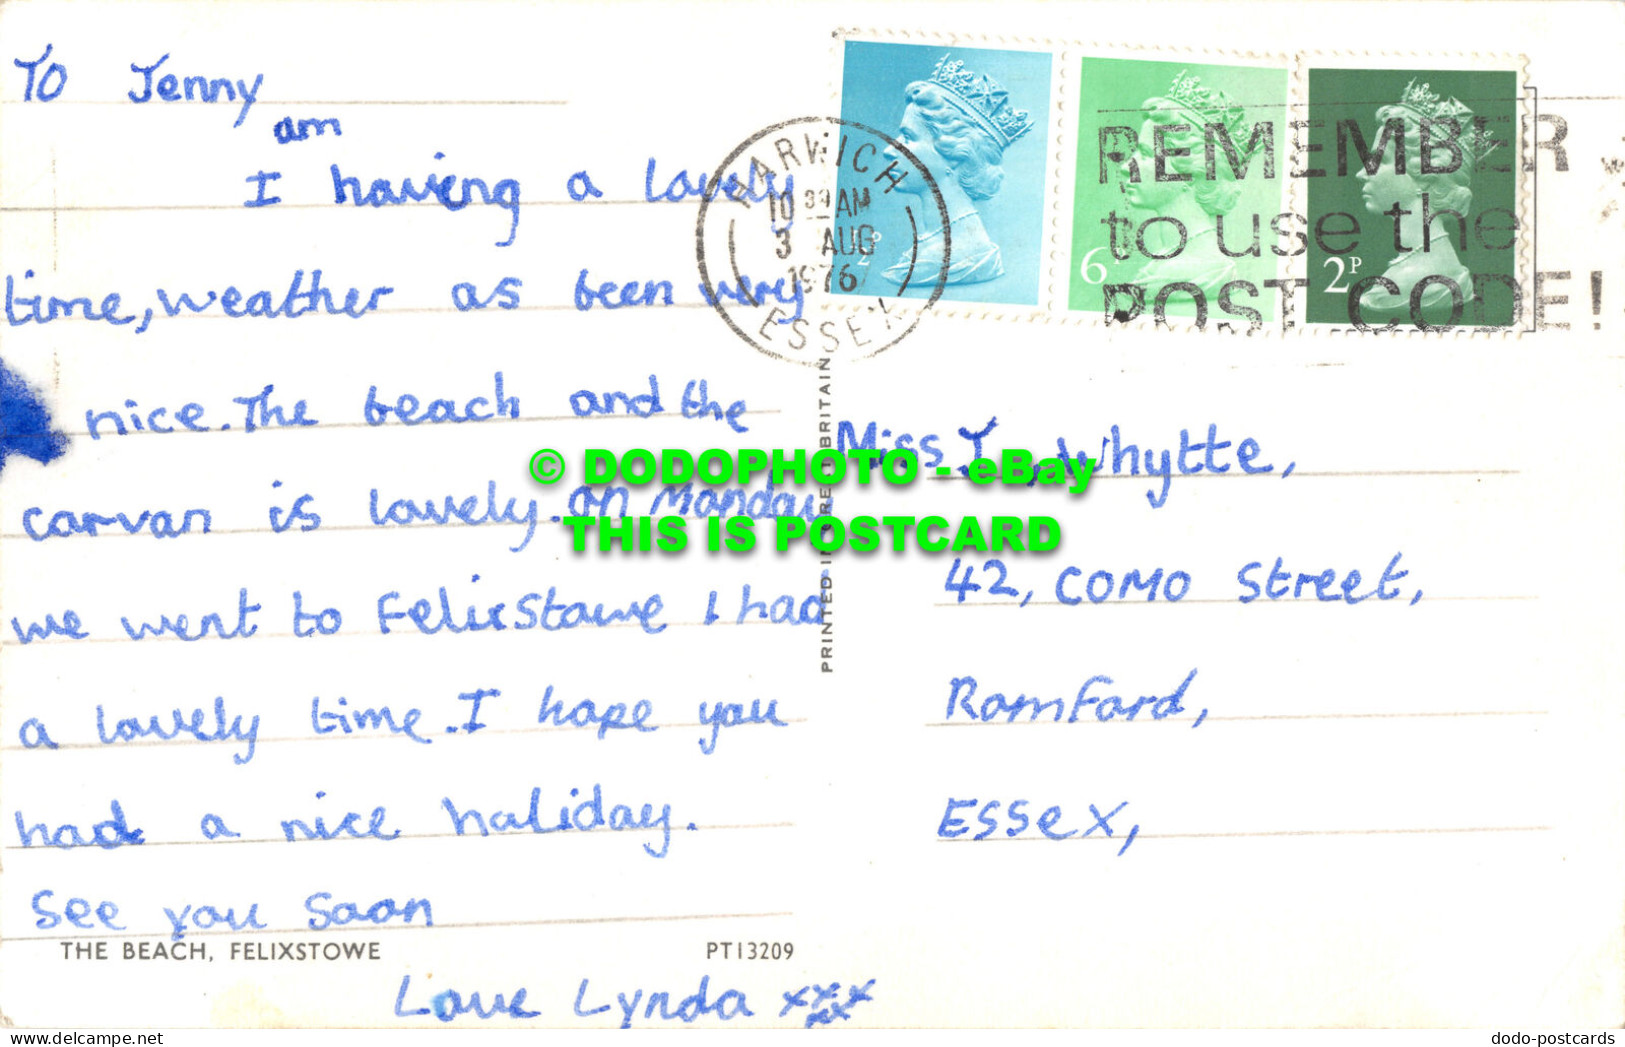 To Jenny
am
I having a lovely
time, weather as been very
nice. The beach and the
carvan is lovely. on Monday
we went to Felixstowe I had
a lovely time. I hope you
had a nice holiday.
See you Soon
THE BEACH, FELIXSTOWE PT13209
Love Lynda xxxxx
HARWICH
10 AM
3 AUG
1976
ESSEX
6
2P
REMEMBER
to use the
POST CODE!
PRINTED IN GREAT BRITAIN
Miss J. Whytte,
42, Como Street,
Romford,
Essex,
© DODOPHOTO - eBay
THIS IS POSTCARD
dodo-postcards